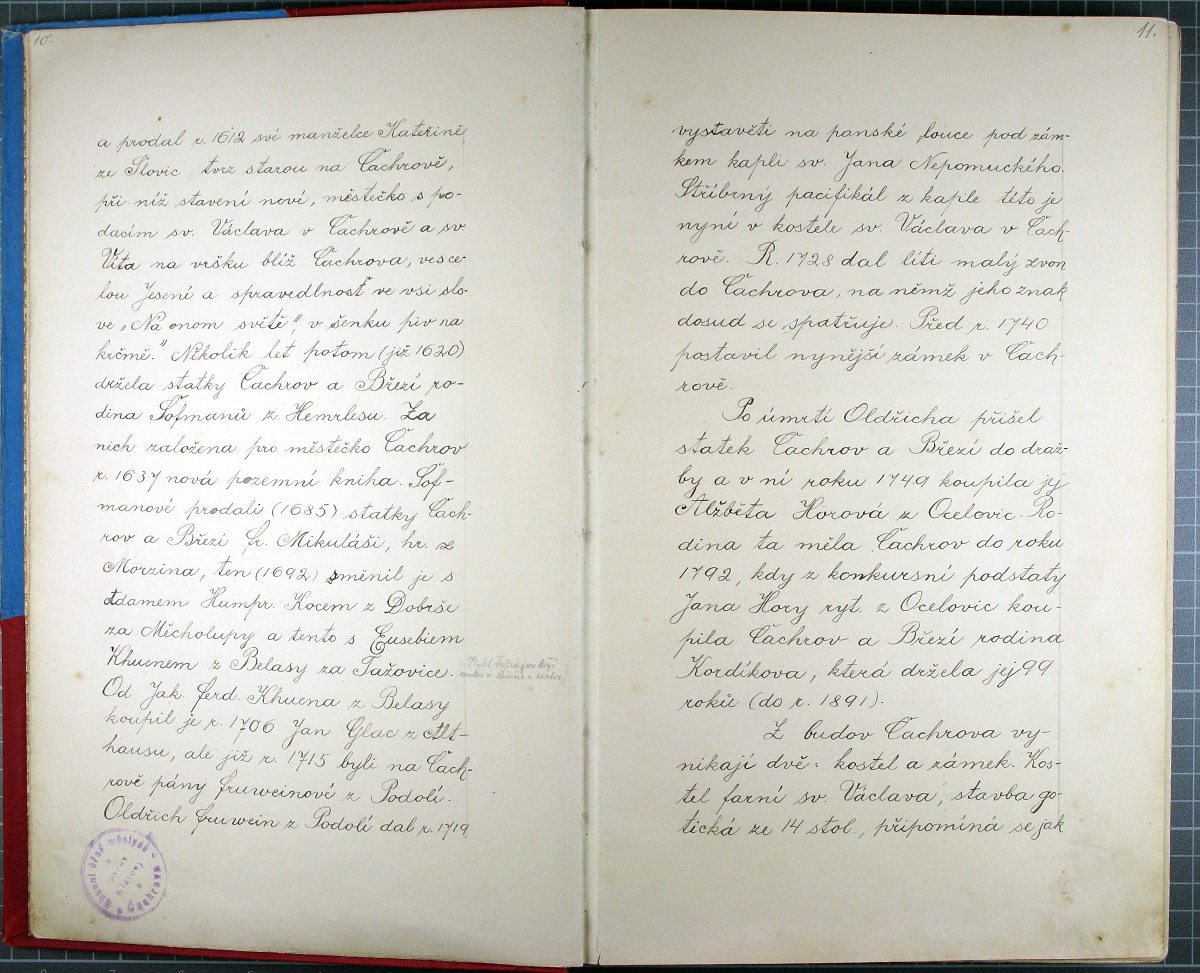 10.
a prodal r. 1612 své manželce Kateřině
ze Slovic tvrz starou na Čachrově,
při níž stavení nové, městečko s po-
dacím sv. Václava v Čachrově a sv
Víta na vršku blíž Čachrova, ves ce-
lou Jesení a spravedlnosť ve vsi slo-
ve „Na onom světě", v šenku piv na
krčmě." Několik let potom (již 1620)
držela statky Čachrov a Březí ro-
dina Šofmanů z Hemrlesu. Za
nich založena pro městečko Čachrov
r. 1637 nová pozemní kniha. Šof-
manové prodali (1685) statky Čach-
rov a Březí fr. Mikuláši, hr. z
Morzina, ten (1692) směnil je s
Adamem Humpr. Kocem z Dobrše
za Měcholupy a tento s Eusebiem
Khuenem z Belasy za Tažovice.
Od Jak. Ferd. Khuena z Belasy
koupil je r. 1706 Jan Glac z Alt-
hausu, ale již r. 1715 byli na Čach-
rově pány Fruweinové z Podolí.
Oldřich Fruwein z Podolí dal r. 1719
11.
vystavěti na panské louce pod zám-
kem kapli sv. Jana Nepomuckého.
Stříbrný pacifikál z kaple této je
nyní v kostele sv. Václava v Čach-
rově. R. 1728 dal líti malý zvon
do Čachrova, na němž jeho znak
dosud se spatřuje. Před r. 1740
postavil nynější zámek v Čach-
rově.
Po úmrtí Oldřicha přišel
statek Čachrov a Březí do draž-
by a v ní roku 1749 koupila jej
Alžběta Horová z Ocelovic. Ro-
dina ta měla Čachrov do roku
1792, kdy z konkursní podstaty
Jana Hory ryt. z Ocelovic kou-
pila Čachrov a Březí rodina
Kordíkova, která držela jej 99
roků (do r. 1891).
Z budov Čachrova vy-
nikají dvě: kostel a zámek. Kos-
tel farní sv. Václava, stavba go-
tická ze 14 stol., připomíná se jak